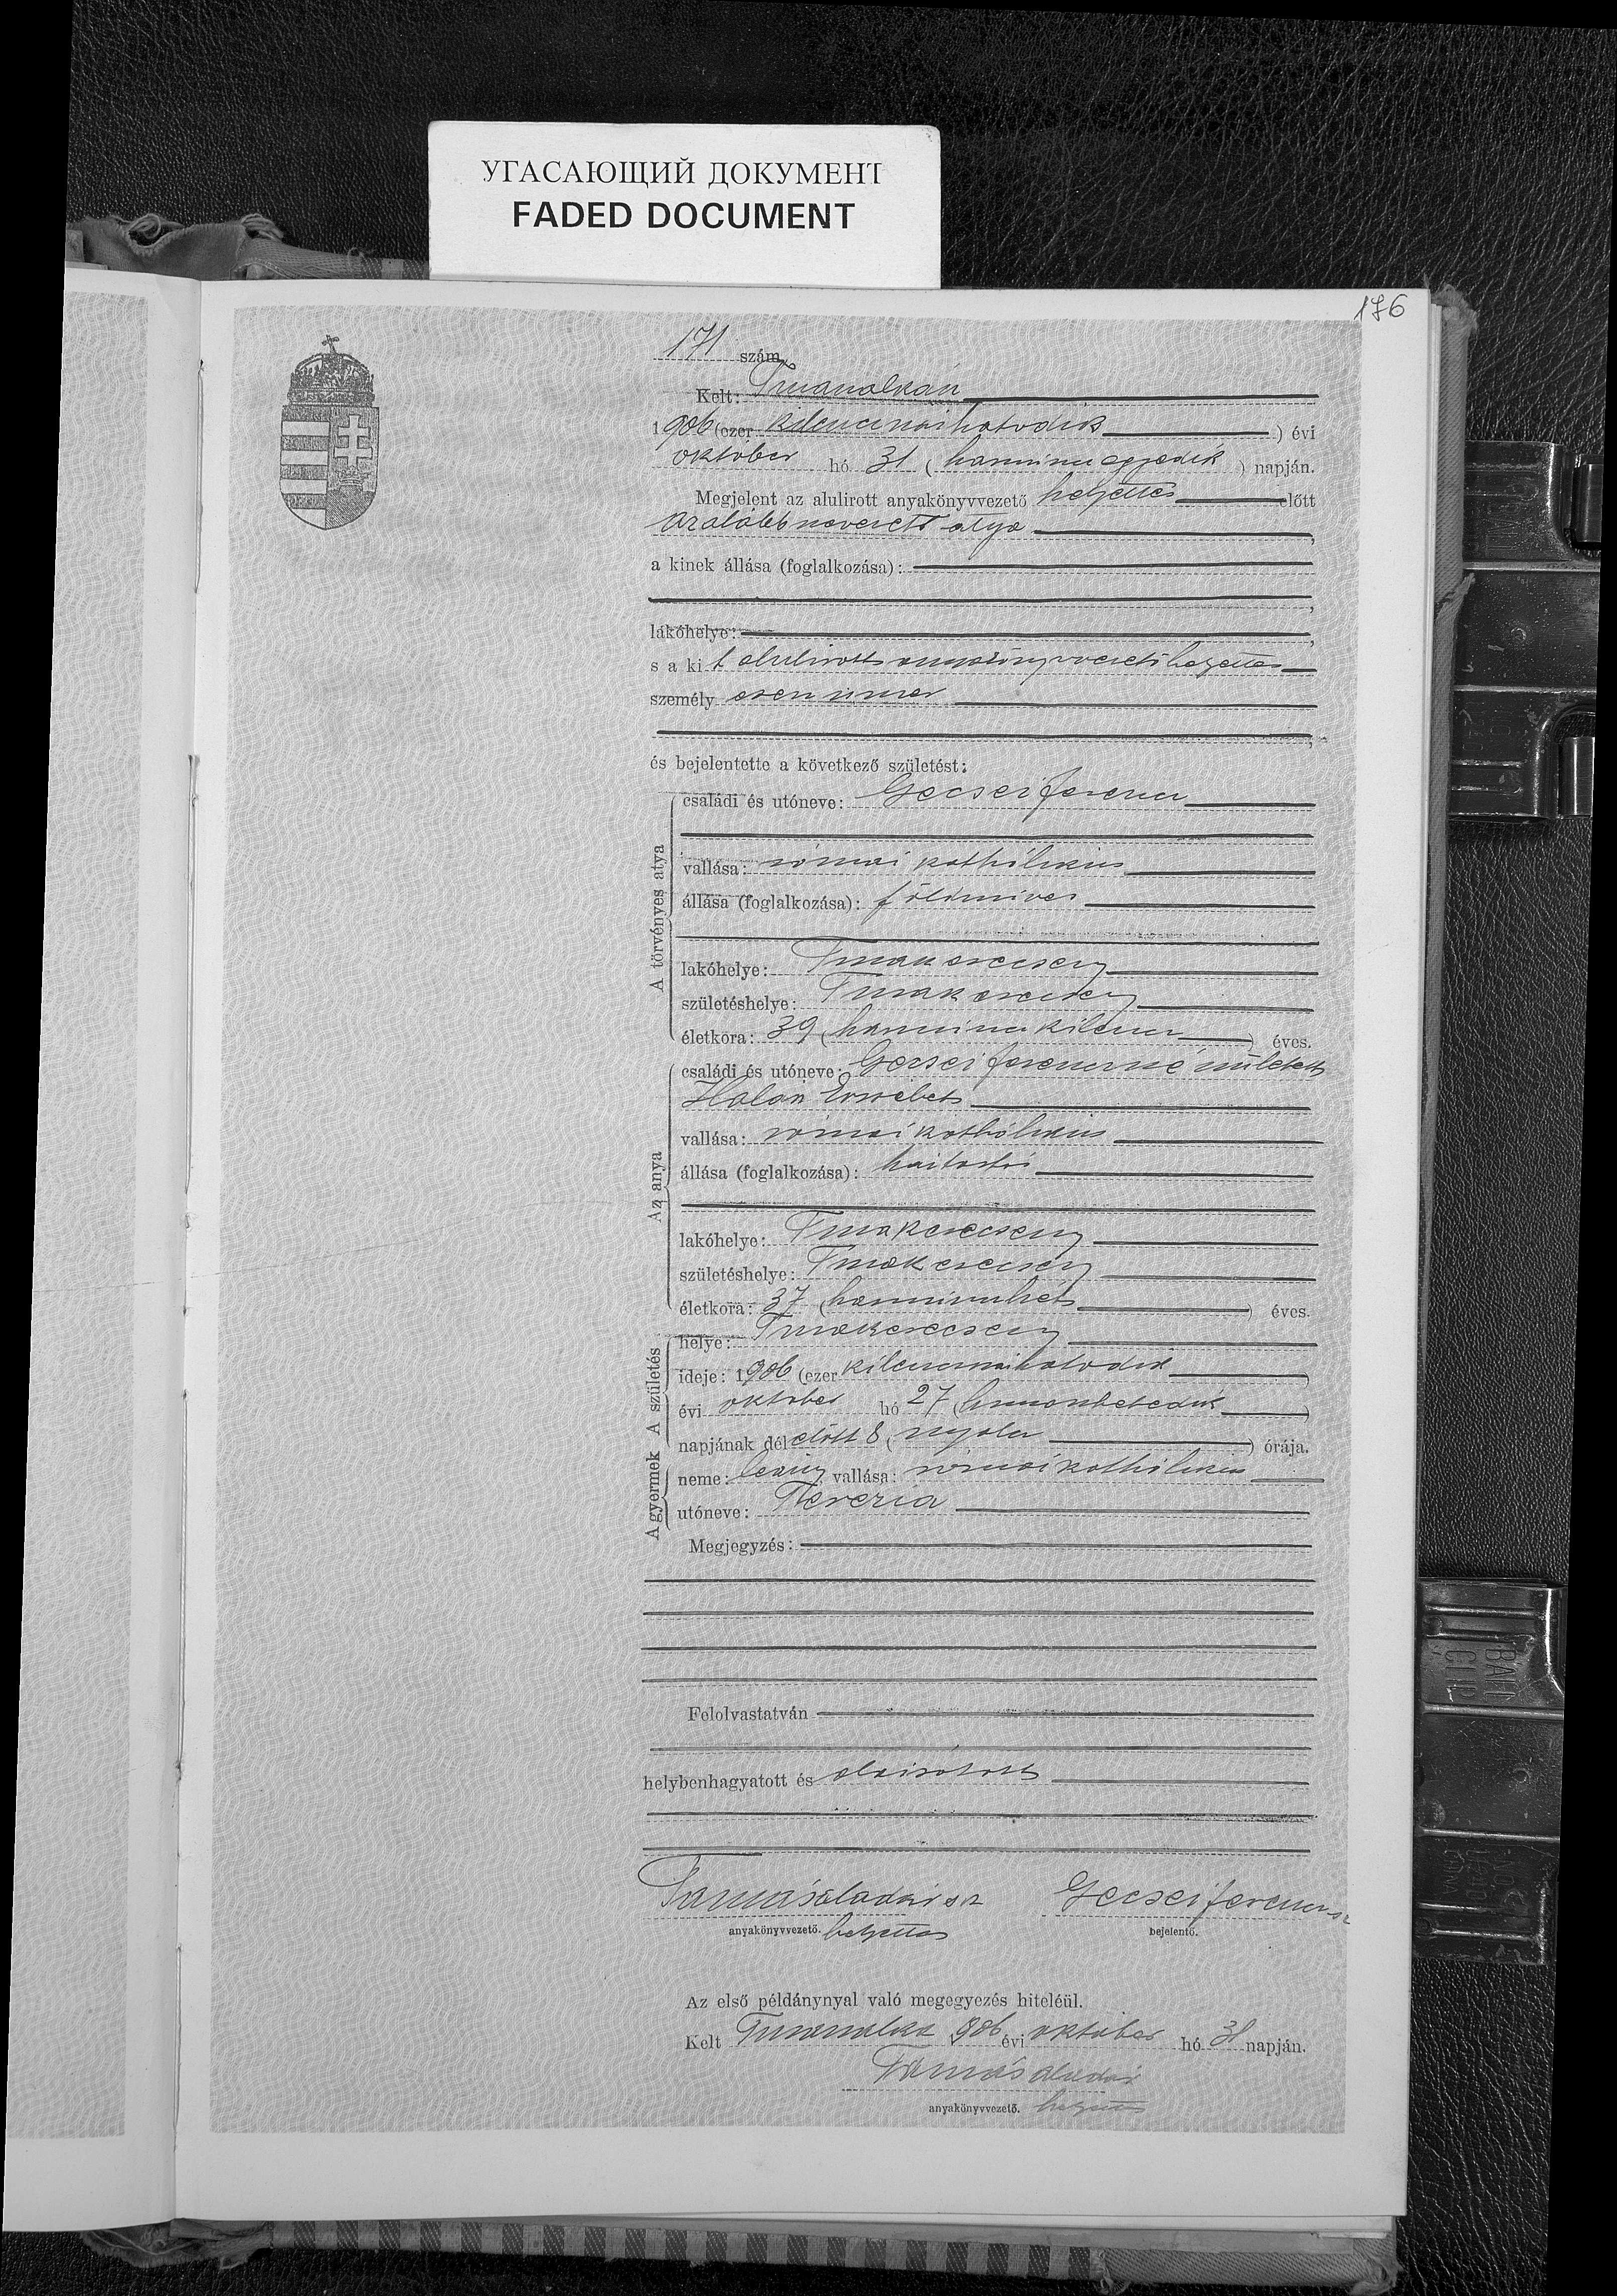 УГАСАЮЩИЙ ДОКУМЕНТ
FADED DOCUMENT
176
171 szám
Kelt:
1906 (ezer kilenczszázhatodik) évi
október hó 31 (harminczegyedik) napján.
Megjelent az alulirott anyakönyvvezető helyettes előtt
az alább nevezett atya,
a kinek állása (foglalkozása):
lakóhelye:
s a kit alulirott anyakönyvvezető helyettes
személyesen ismer
és bejelentette a következő születést:
A törvényes atya
családi és utóneve: Gecsei Ferencz
vallása: római katholikus
állása (foglalkozása): földmives
lakóhelye:
születéshelye:
életkora: 39 (harminczkilencz) éves.
Az anya
családi és utóneve: Gecsei Ferenczné született
Erzsébet
vallása: római katholikus
állása (foglalkozása): háztartási
lakóhelye:
születéshelye:
életkora: 37 (harminczhét) éves.
A születés
helye:
ideje: 1906 (ezer kilenczszázhatodik)
évi október hó 27 (huszonhetedik)
napjának délelőtt 8 (nyolcz) órája.
A gyermek
neme: leány, vallása: római katholikus
utóneve: Terézia
Megjegyzés:
Felolvastatván
helybenhagyatott és aláiratott
Tamás Aladár sk Gecsei Ferencz sk
anyakönyvvezető. helyettes bejelentő.
Az első példánynyal való megegyezés hiteléül.
Kelt 1906 évi október hó 31 napján.
Tamás Aladár
anyakönyvvezető. helyettes